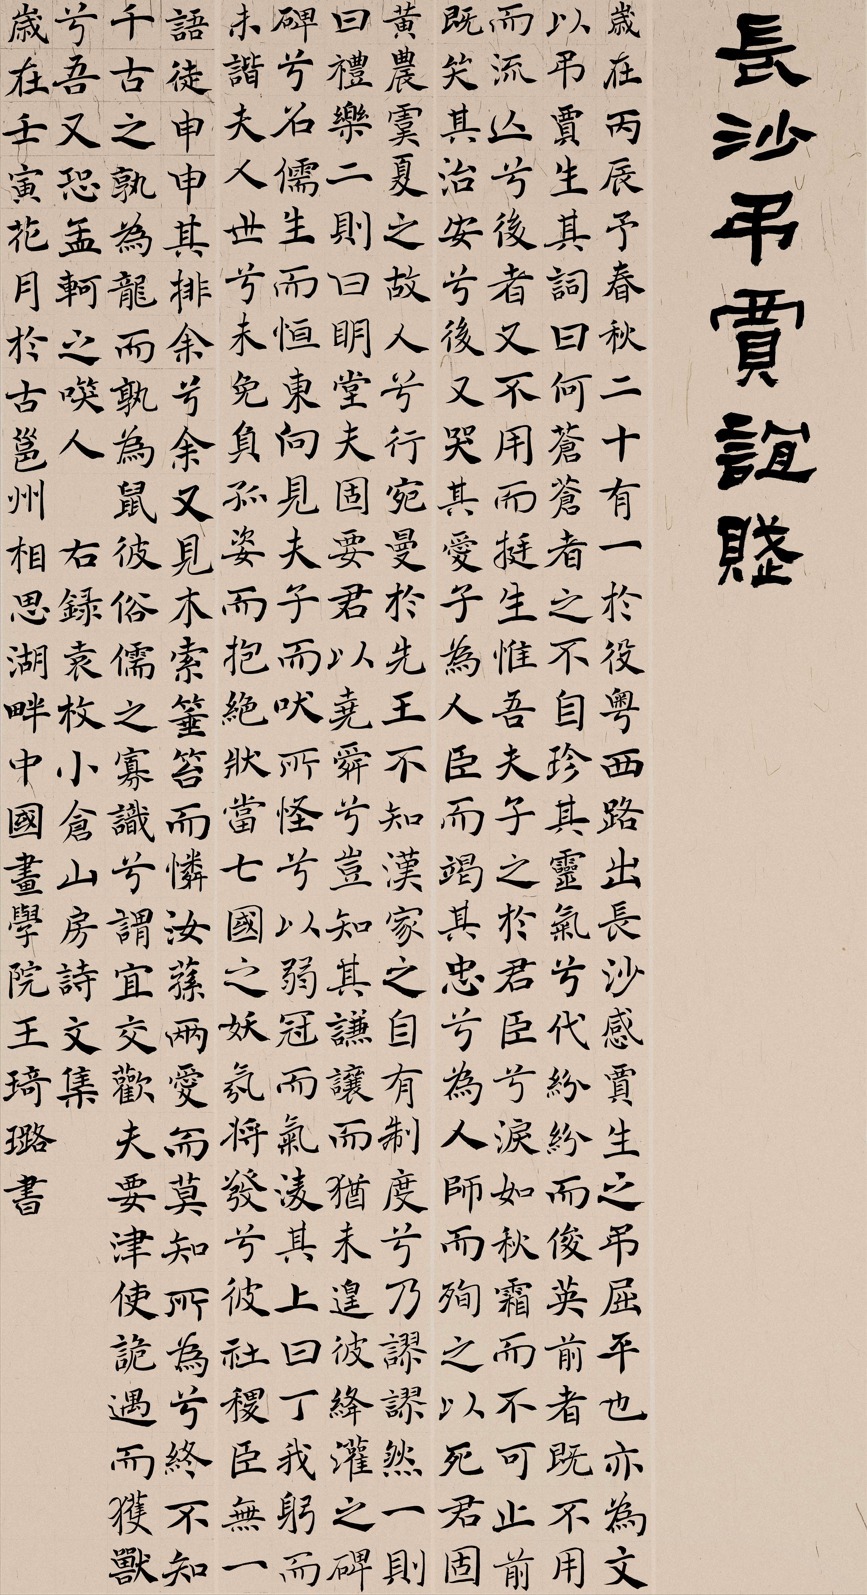 長沙弔賈誼賤
歲在丙辰予春秋二十有一於役粵西路出長沙感賈生之弔屈平也亦為文
以弔賈生其詞曰何蒼蒼者之不自珍其靈氣兮代紛紛而俊英前者既不用
而流亾兮後者又不用而挺生惟吾夫子之於君臣兮淚如秋霜而不可止前
既笑其治安兮後又哭其愛子為人臣而竭其忠兮為人師而殉之以死君固
黃農虞夏之故人兮行宛曼於先王不知漢家之自有制度兮乃謬謬然一則
曰禮樂二則曰明堂夫固要君以堯舜兮豈知其謙讓而猶未遑彼絳灌之碑
碑兮召儒生而恒東向見夫子而吠所怪兮以弱冠而氣淩其上曰丁我躬而
未諧夫人世兮未免負孤姿而抱絕狀當七國之妖氛將發兮彼社稷臣無一
語徒申申其排余兮余又見木索箠笞而憐汝蓀兩愛而莫知所為兮終不知
千古之孰為龍而孰為鼠彼俗儒之寡識兮謂宜交歡夫要津使詭遇而獲獸
兮吾又恐孟軻之唉人　右錄袁枚小倉山房詩文集
歲在壬寅花月於古邕州相思湖畔中國畫學院王琦璐書